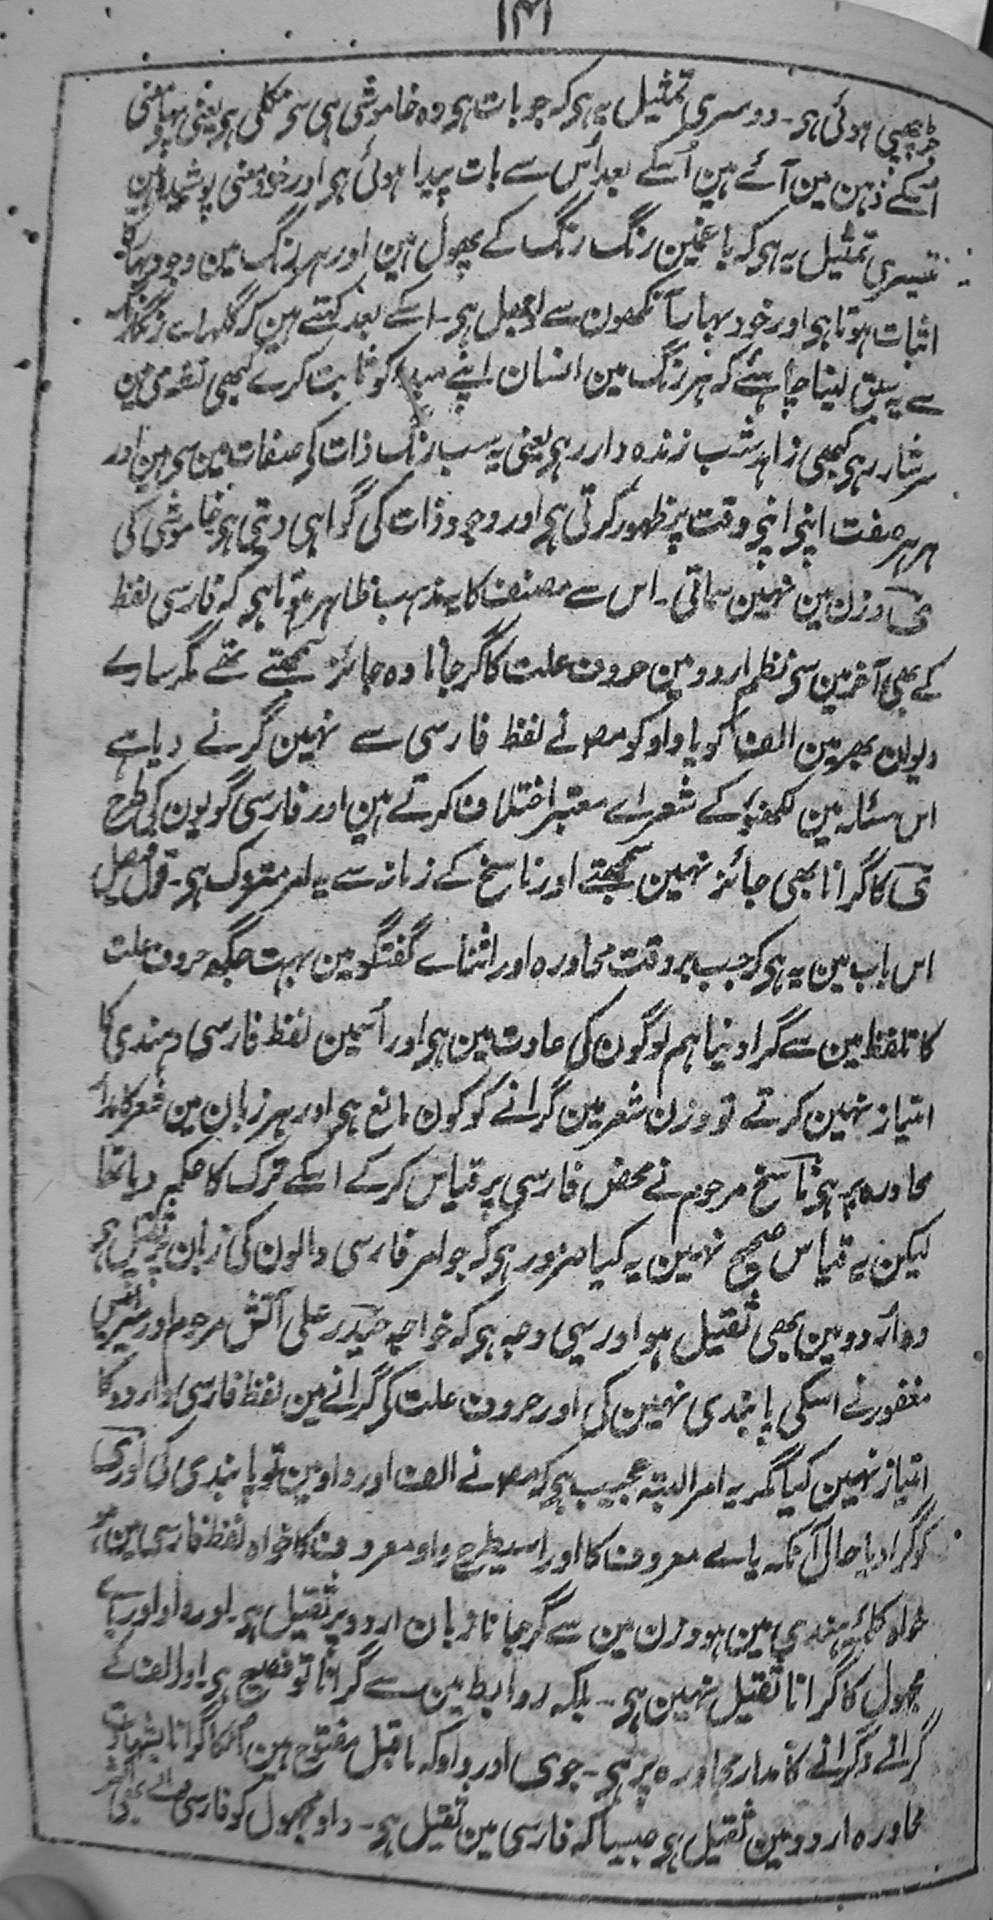 ۱۴۱
چھپی ہوئی ہی۔ دوسری تمثیل یہ ہی کہ جو بات ہی وہ خاموشی ہی سی نکلی ہی یعنی پہلے معنی
اُسکے ذہن مین آئے ہین اُسکے بعد اُس سے بات پیدا ہوئی ہی اور خود معنی پوشیدہ ہین
تیسری تمثیل یہ ہی کہ باغمین رنگ رنگ کے پھول ہین اور ہر رنگ مین وجود بہار کا
اثبات ہوتا ہی اور خود بہار آنکھون سے اوجھل ہی۔ اسکے بعد کہتے ہین کہ گلہاے رنگارنگ
سے یہ سبق لینا چاہئے کہ ہر رنگ مین انسان اپنے کو ثابت کرے کبھی نشہ مین
سرشار رہی کبھی زاہد شب زندہ دار رہی یعنی یہ سب رنگ ذات کی صفات مین سی ہین اور
ہر ہر صفت اپنی اپنی وقت پر ظہور کرتی ہی اور وجود ذات کی گواہی دیتی ہی خاموشی کی
ی وزن مین نہین سماتی۔ اس سے مصنف کا یہ مذہب ظاہر ہوتا ہی کہ فارسی لفظ
کے بھی آخر مین سی نظم اردو مین حروف علت کا گر جانا وہ جائز سمجھتے تھے مگر سارے
دیوان بھر مین الف کو یا واو کو مص نے لفظ فارسی سے نہین گرنے دیا ہے
اس مسئلہ مین لکھنؤ کے شعراے معتبر اختلاف کرتے ہین اور فارسی گویون کی طرح
ی کا گرانا بھی جائز نہین سمجھتے اور ناسخ کے زمانہ سے یہ امر متروک ہی۔ قول فیصل
اس باب مین یہ ہی کہ جب بر وقت محاورہ اور اثناے گفتگو مین بہت جگہ حروف علت
کا تلفظ مین سے گرا دینا ہم لوگون کی عادت مین ہی اور اُسمین لفظ فارسی و ہندی کا
امتیاز نہین کرتے تو وزن شعر مین گرانے کو کون مانع ہی اور ہر زبان مین شعر کا مدار
محاورہ پر ہی ناسخ مرحوم نے محض فارسی پر قیاس کر کے اسکے ترک کا حکم دیا تھا
لیکن یہ قیاس صحیح نہین یہ کیا ضرور ہی کہ جو امر فارسی والون کی زبان پر ثقیل ہی
وہ اُردو مین بھی ثقیل ہو اور یہی وجہ ہی کہ خواجہ حیدر علی آتش مرحوم اور میر انیس
مغفور نے اسکی پابندی نہین کی اور حروف علت کی گرانے مین لفظ فارسی و اردو کا
امتیاز نہین کیا مگر یہ امر البتہ عجیب ہی کہ مص نے الف اور واو مین تو پابندی کی اور ی
کو گرا دیا حال آنکہ یاے معروف کا اور اسیطرح واو معروف کا خواہ لفظ فارسی مین ہو
خواہ کلمۂ ہندی مین ہو وزن مین سے گر جانا زبان اردو پر ثقیل ہی اور واو اور یاے
مجہول کا گرانا ثقیل نہین ہی۔ بلکہ روابط مین سے گرانا تو فصیح ہی اور الف کے
گرانے نگرانے کا مدار محاورہ پر ہی۔ جو ی اور واو کہ ماقبل مفتوح ہین اُنکا گرانا بشہادت
محاورہ اردو مین ثقیل ہی جیسا کہ فارسی مین ثقیل ہی۔ واو مجہول کو فارسی والے بھی